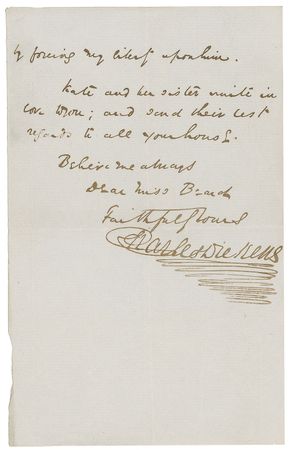 by forcing my                upon him.
Kate and her sister unite in
love to you; and send their best
regards to all your house.
Believe me always
Dear Miss Beard
Faithfully Yours
Charles Dickens